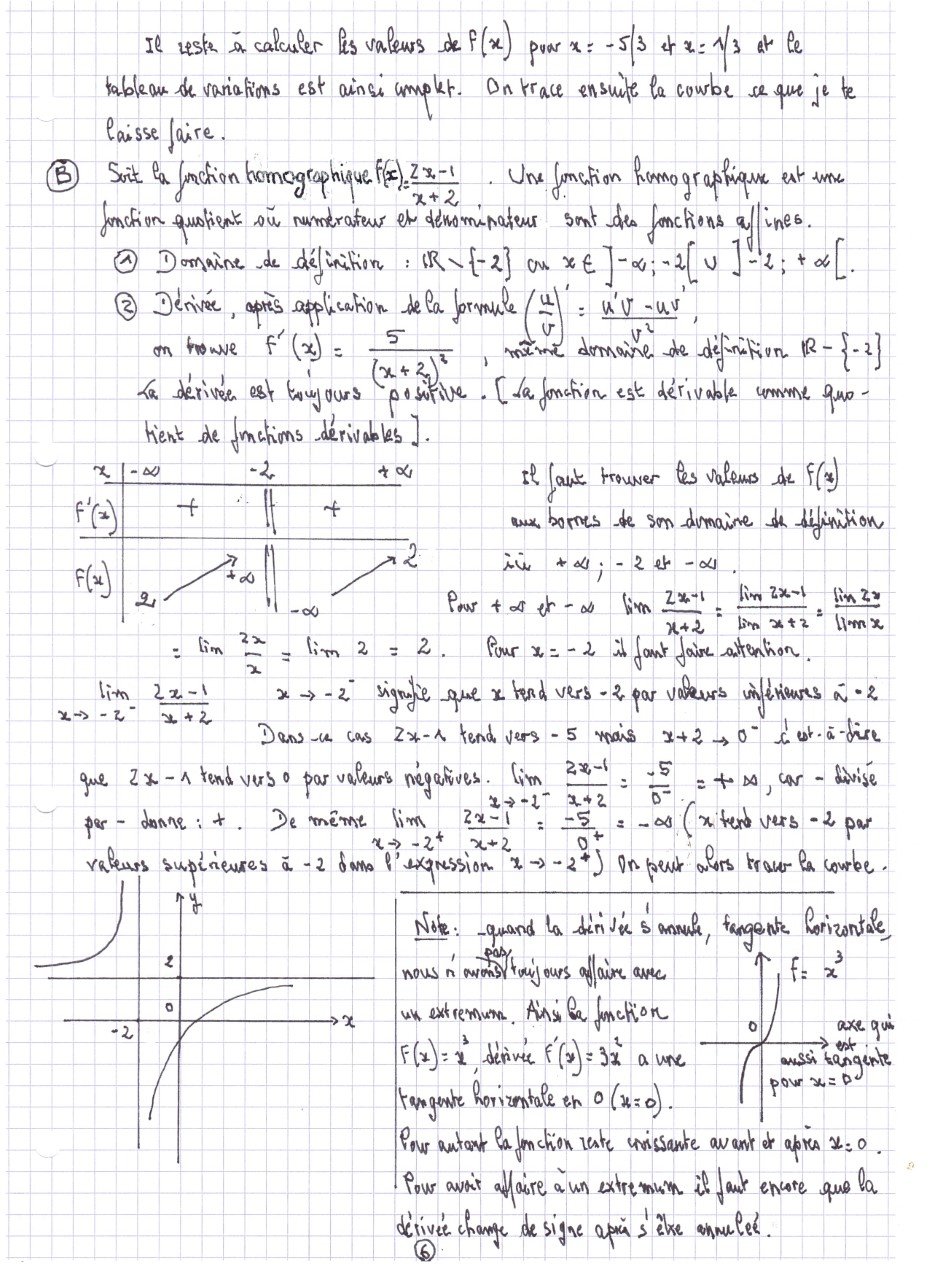 Il reste à calculer les valeurs de f(x) pour x = -5/3 et x = 1/3 et le
tableau de variations est ainsi complet. On trace ensuite la courbe ce que je te
laisse faire.
(B) Soit la fonction homographique f(x) = (2x-1)/(x+2). Une fonction homographique est une
fonction quotient où numérateur et dénominateur sont des fonctions affines.
(1) Domaine de définition : ℝ \ {-2} ou x ∈ ]-∞ ; -2[ ∪ ]-2 ; +∞[.
(2) Dérivée, après application de la formule (u/v)' = (u'v - uv')/v²,
on trouve f'(x) = 5/(x+2)², même domaine de définition ℝ - {-2}
La dérivée est toujours positive. [La fonction est dérivable comme quo-
tient de fonctions dérivables].
x | -∞ -2 +∞
f'(x) + || +
f(x) 2 +∞ || -∞ 2
Il faut trouver les valeurs de f(x)
aux bornes de son domaine de définition
ici +∞ ; -2 et -∞.
Pour +∞ et -∞ lim (2x-1)/(x+2) = (lim 2x-1)/(lim x+2) = (lim 2x)/(lim x)
= lim 2x/x = lim 2 = 2. Pour x = -2 il faut faire attention.
lim x→-2⁻ (2x-1)/(x+2) x → -2⁻ signifie que x tend vers -2 par valeurs inférieures à -2
Dans ce cas 2x-1 tend vers -5 mais x+2 → 0⁻ c'est-à-dire
que 2x-1 tend vers 0 par valeurs négatives. lim x→-2⁻ (2x-1)/(x+2) = -5/0⁻ = +∞, car - divisé
par - donne : +. De même lim x→-2⁺ (2x-1)/(x+2) = -5/0⁺ = -∞ (x tend vers -2 par
valeurs supérieures à -2 dans l'expression x → -2⁺) On peut alors tracer la courbe.
y
2
0
-2
x
Note : quand la dérivée s'annule, tangente horizontale,
nous n'avons pas toujours affaire avec
un extremum. Ainsi la fonction
f(x) = x³, dérivée f'(x) = 3x² a une
tangente horizontale en 0 (x=0).
Pour autant la fonction reste croissante avant et après x=0.
Pour avoir affaire à un extremum il faut encore que la
dérivée change de signe après s'être annulée.
f = x³
0
axe qui
est
aussi tangente
pour x = 0
6